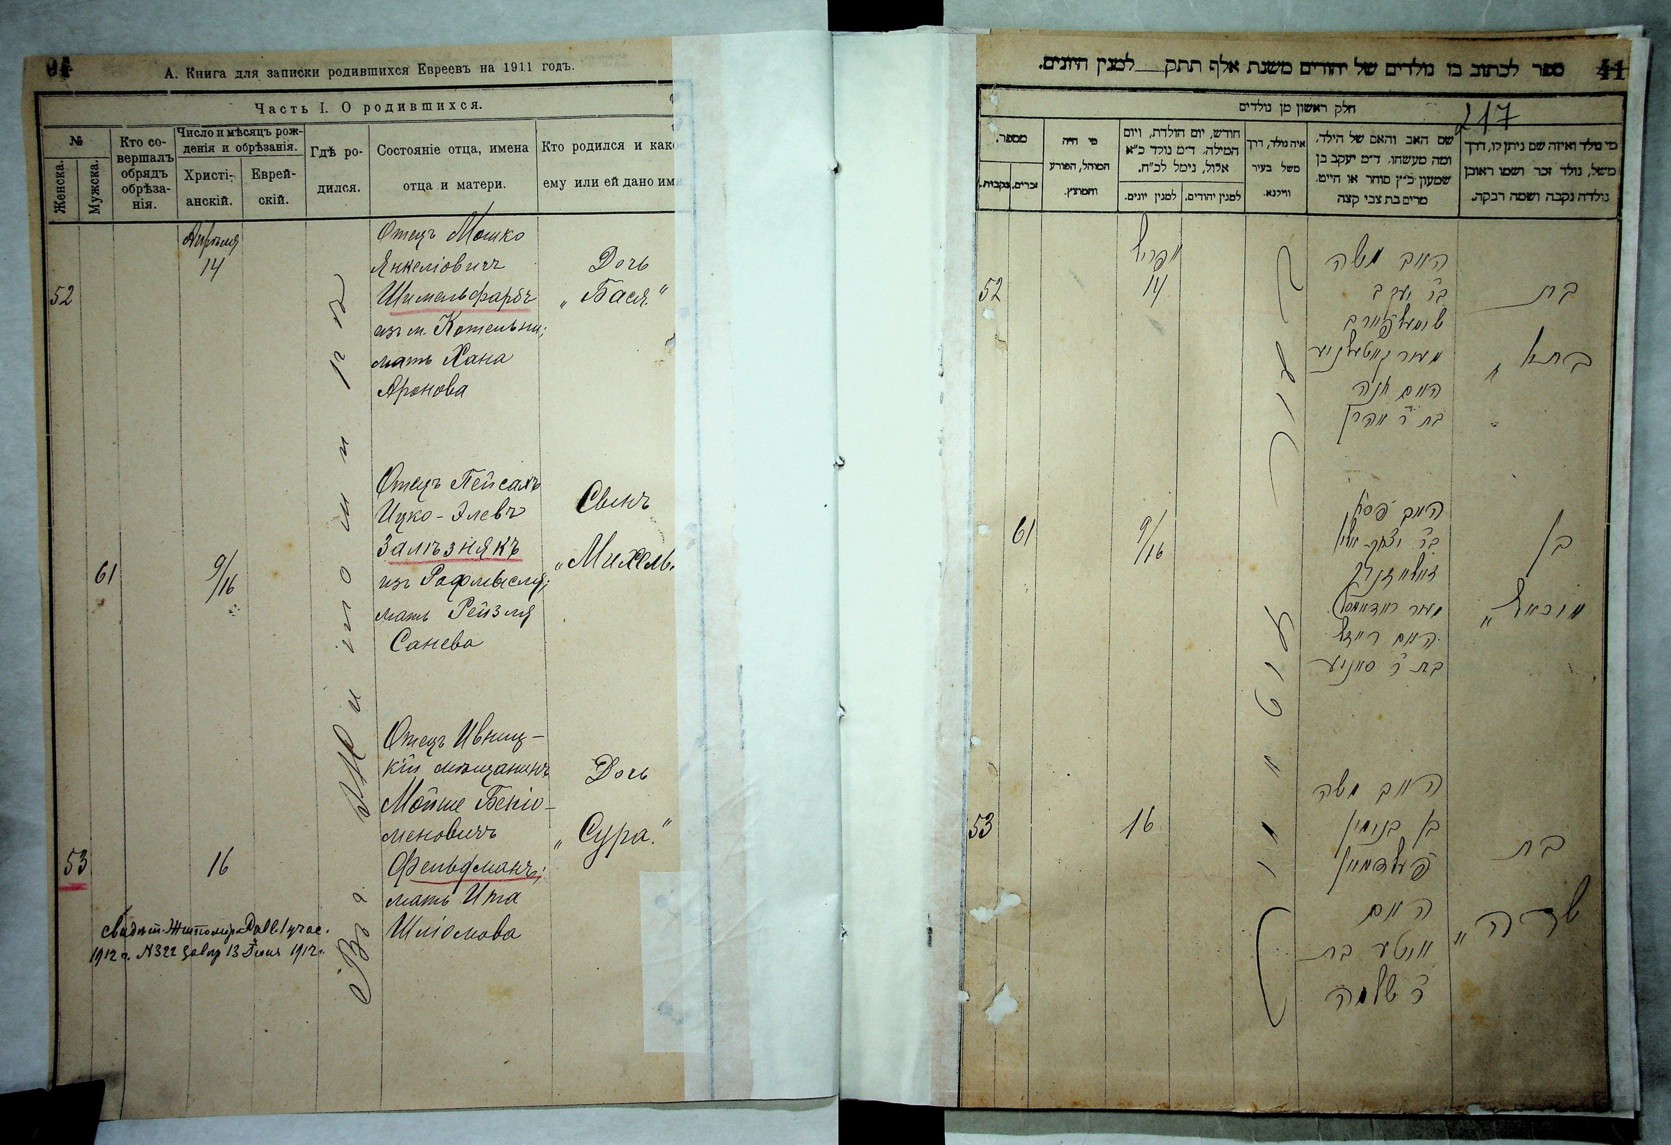 94
А. Книга для записки родившихся Евреевъ на 1911 годъ.
Часть I. О родившихся.
№
Женска.
Мужска.
Кто совершалъ обрядъ обрѣзанія.
Число и мѣсяцъ рожденія и обрѣзанія.
Христіанскій.
Еврейскій.
Гдѣ родился.
Состояніе отца, имена
отца и матери.
Кто родился и како
ему или ей дано им
52
Апрѣля
14
Отецъ Мошко
Янкеліовичъ
Шимельфарбъ
изъ м. Котельни;
мать Хана
Аронова
Дочь
„Бася“
61
9/16
Отецъ Пейсахъ
Ицко-Элевъ
Залѣзнякъ
изъ Радомысля;
мать Рейзля
Санева
Сынъ
„Михель“
53
16
Отецъ Ивниц-
кій мѣщанинъ
Мойше Беніо-
меновичъ
Фельдманъ;
мать Ита
Шліомова
Дочь
„Сура“
Въ г. Житомирѣ
1912 г. №322 13 1912 г.
ספר לכתוב בו נולדים של יהודים משנת אלף תתק למנין היונים.
41
217
חלק ראשון מן נולדים
מספר.
זכרים.
נקבות.
מי היה
המוהל, הפורע
והמוצץ.
חודש, יום הולדת, ויום
המילה, ד״מ נולד כ״א
אלול, נימל לכ״ח.
למנין יונים.
למנין יהודים.
איה נולד, דרך
משל בעיר
ווילנא.
שם האב והאם של הילד,
ומה מעשהו. ד״מ יעקב בן
שמעון כ״ץ סוחר או חייט.
מרים בת צבי קצה
מי נולד ואיזה שם ניתן לו, דרך
משל, נולד זכר ושמו ראובן
נולדה נקבה ושמה רבקה.
52
אפריל
14
האב משה
בר יעקב
האם חנה
בת ר׳ אהרן
בת
61
9/16
האב פסח
האם רייזל
בת ר׳ סאניע
בן
מיכאל
53
16
האב משה
בן בנימין
פעלדמאן
האם
איטע בת
ר׳ שלמה
בת
שרה